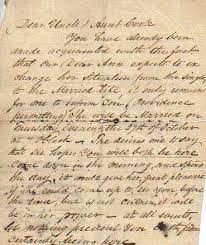 Dear Uncle & Aunt Cook
You have already been
made acquainted with the fact
that our Dear Ann expects to ex
change her situation from the Single
to the Married life, it only remains
for one to inform you (Providence
permitting) She will be Married on
Thursday evening the 29th of October
at o'Clock. She desires me to say
she hopes you will both be here
come down in the morning and spend
the day, it would give her great pleasure
if she could come up to see you before
the time but is not certain it will
be in her power – at all events,
let nothing prevent you from
certainly being here